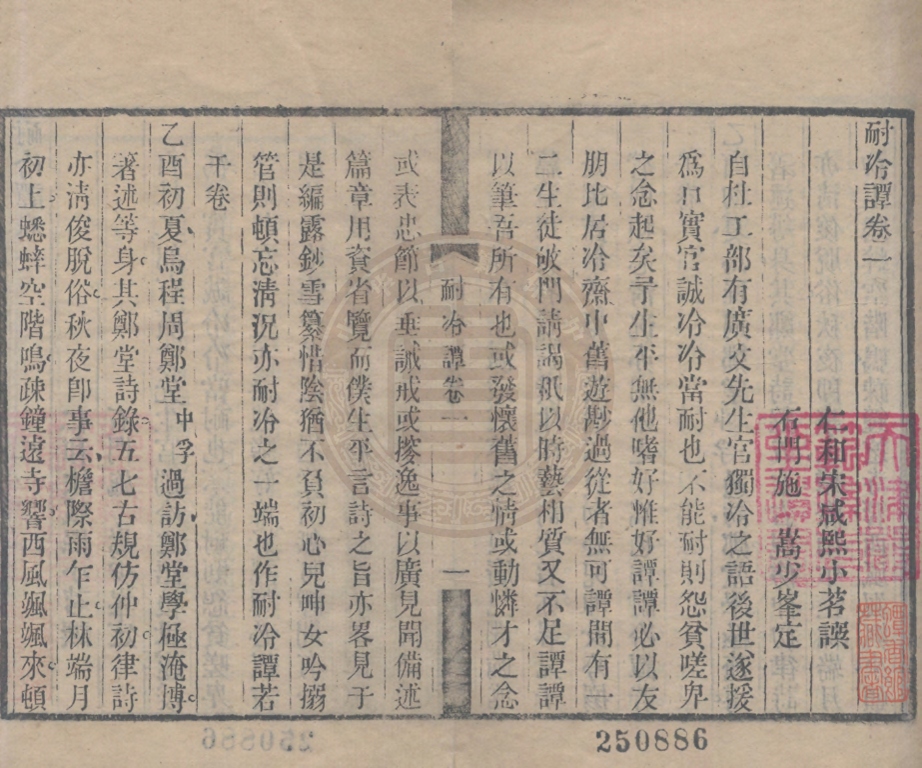 耐冷譚卷一
仁和宋咸熙小茗譔
石門施嵩少峯定
自杜工部有廣文先生官獨冷之語後世遂援
爲口實官誠冷冷當耐也不能耐則怨貧嗟卑
之念起矣予生平無他嗜好惟好譚譚必以友
朋比居冷齋中舊遊尠過從者無可譚間有一
二生徒敂門請謁祇以時藝相質又不足譚譚
以筆吾所有也或發懷舊之情或動憐才之念
耐冷譚卷一
一
或表忠節以垂誡戒或摉逸事以廣見聞備述
篇章用資省覽而僕生平言詩之旨亦畧見于
是編露鈔雪纂惜陰猶不負初心兒呻女吟搦
管則頓忘淸況亦耐冷之一端也作耐冷譚若
干卷
乙酉初夏烏程周鄭堂中孚過訪鄭堂學極淹博
著述等身其鄭堂詩錄五七古規仿仲初律詩
亦淸俊脫俗秋夜卽事云檐際雨乍止林端月
初上蟋蟀空階鳴疎鐘遠寺響西風颯颯來頓
250886